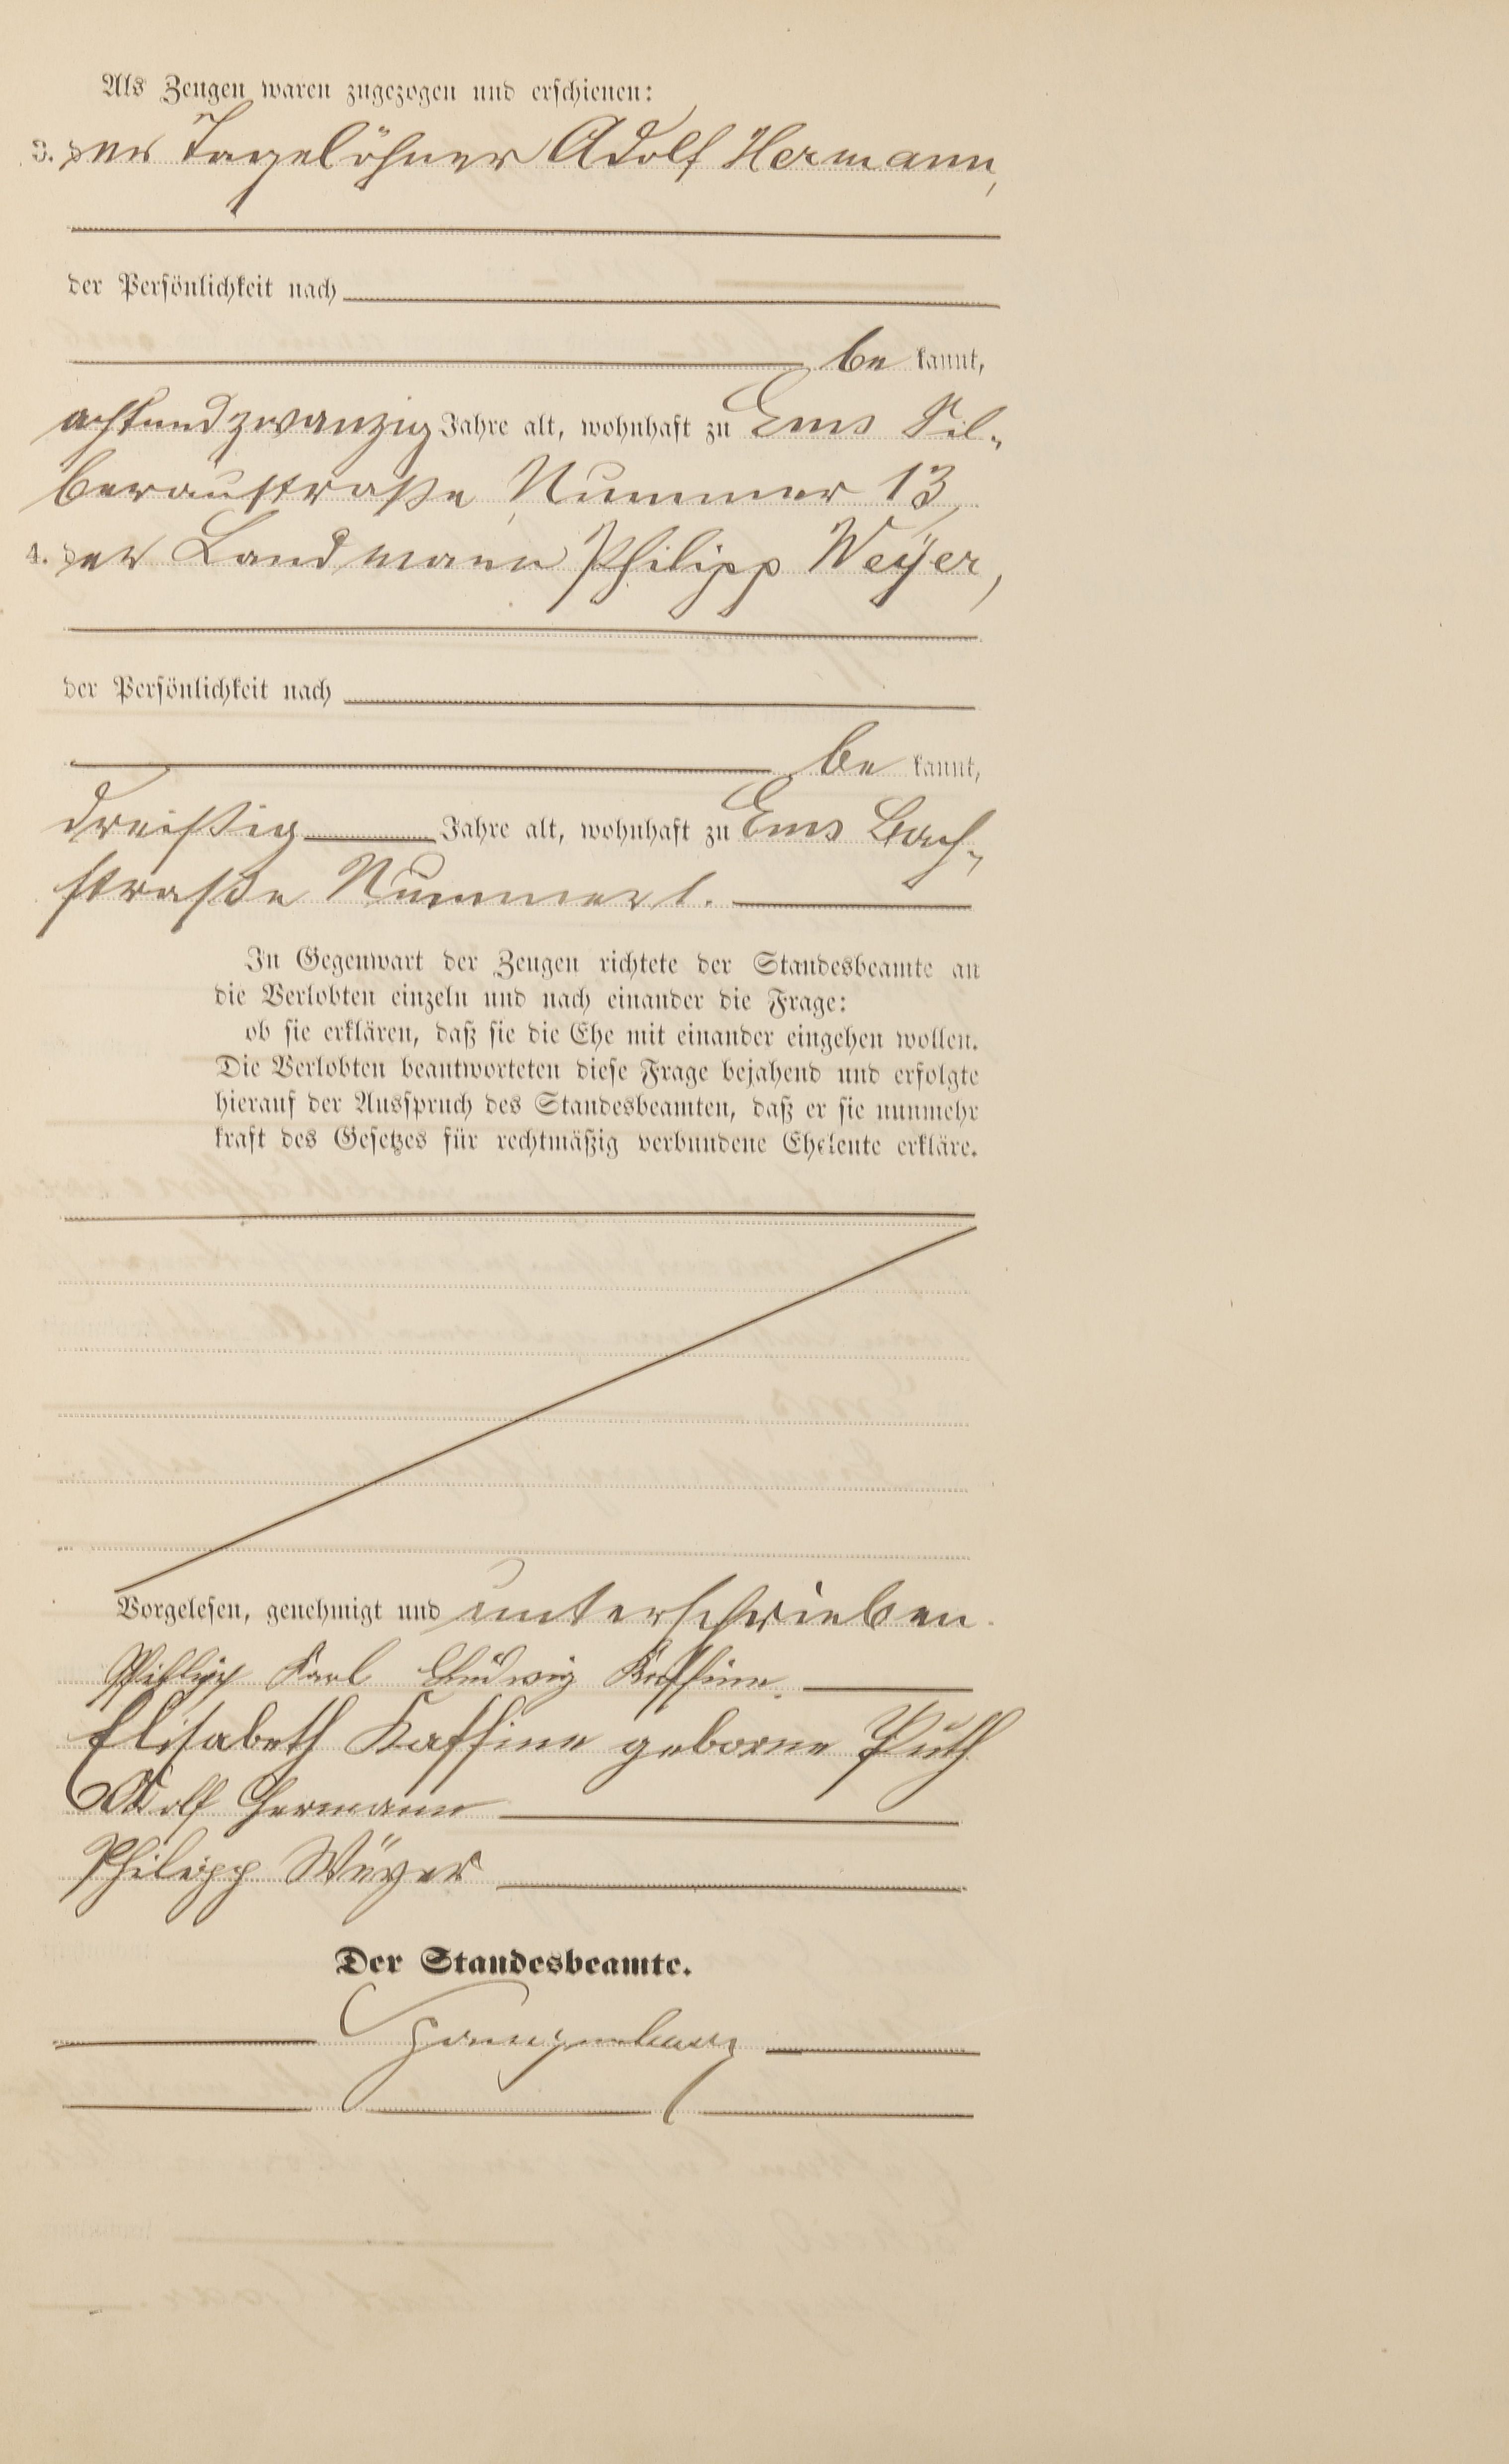 Als Zeugen waren zugezogen und erschienen:
3. der Tagelöhner Adolf Hermann,
der Persönlichkeit nach
be kannt,
achtundzwanzig Jahre alt, wohnhaft zu Ems Sil-
beraustraße Nummer 13
4. der Landmann Philipp Weyer,
der Persönlichkeit nach
be kannt,
dreißig Jahre alt, wohnhaft zu Ems Bach-
straße Nummer 1.
In Gegenwart der Zeugen richtete der Standesbeamte an
die Verlobten einzeln und nach einander die Frage:
ob sie erklären, daß sie die Ehe mit einander eingehen wollen.
Die Verlobten beantworteten diese Frage bejahend und erfolgte
hierauf der Ausspruch des Standesbeamten, daß er sie nunmehr
kraft des Gesetzes für rechtmäßig verbundene Eheleute erkläre.
Vorgelesen, genehmigt und unterschrieben.
Philipp Karl Ludwig Kaffine.
Elisabeth Kaffine geborne Puth
Adolf Hermann
Philipp Weyer
Der Standesbeamte.